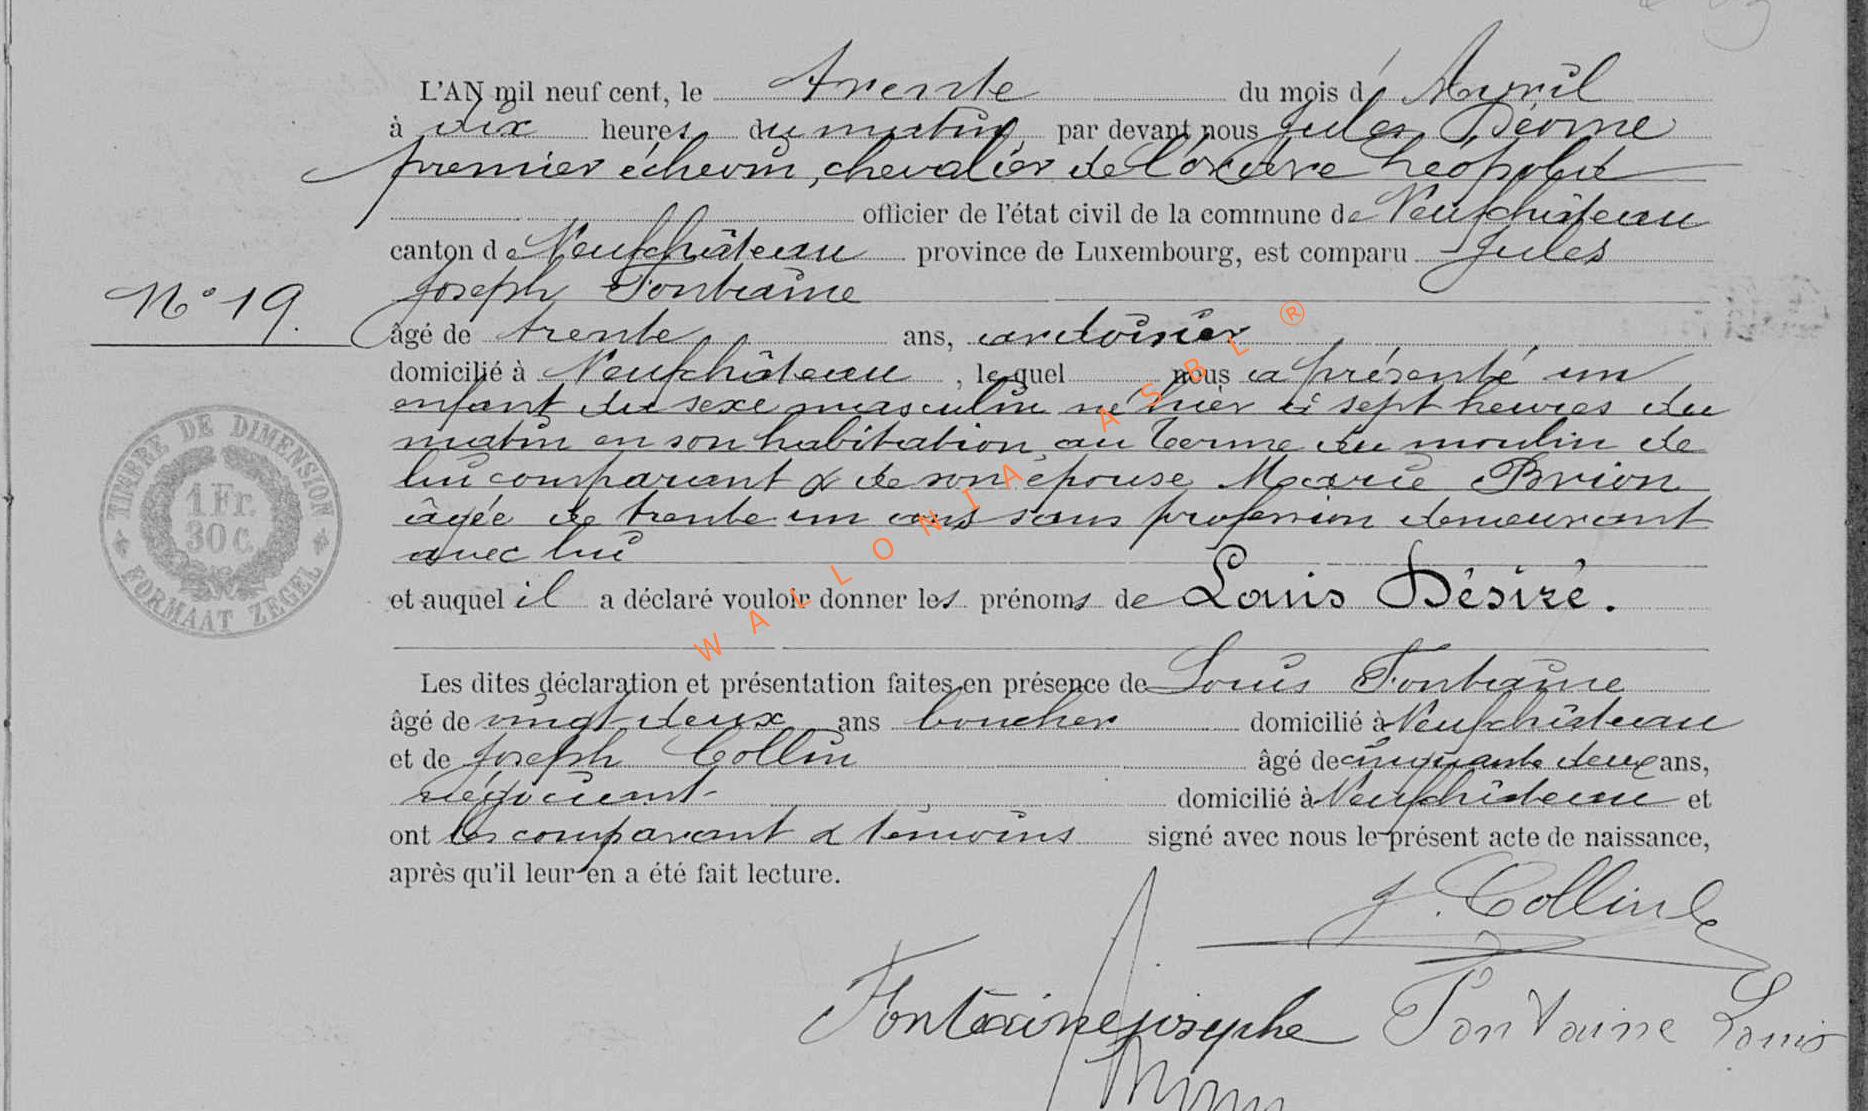 L'AN mil neuf cent, le trente du mois d'Avril
à dix heures du matin, par devant nous Jules
premier échevin, chevalier de l'ordre Léopold
officier de l'état civil de la commune de Neufchâteau
canton de Neufchâteau province de Luxembourg, est comparu Jules
Joseph Fontaine
N° 19.
âgé de trente ans, ardoisier
domicilié à Neufchâteau, lequel nous a présenté un
enfant du sexe masculin né hier à sept heures du
matin en son habitation au Terme du moulin de
lui comparant & de son épouse Marie Brion
âgée de trente un ans sans profession demeurant
avec lui
TIMBRE DE DIMENSION
1 Fr.
30 C.
FORMAAT ZEGEL
et auquel il a déclaré vouloir donner les prénoms de Louis Désiré.
Les dites déclaration et présentation faites en présence de Louis Fontaine
âgé de vingt deux ans boucher domicilié à Neufchâteau
et de Joseph Collin âgé de cinquante deux ans,
négociant domicilié à Neufchâteau et
ont les comparant & témoins signé avec nous le présent acte de naissance,
après qu'il leur en a été fait lecture.
J. Collin
Fontaine josephe Fontaine Louis
WALLONIA ASBL ®